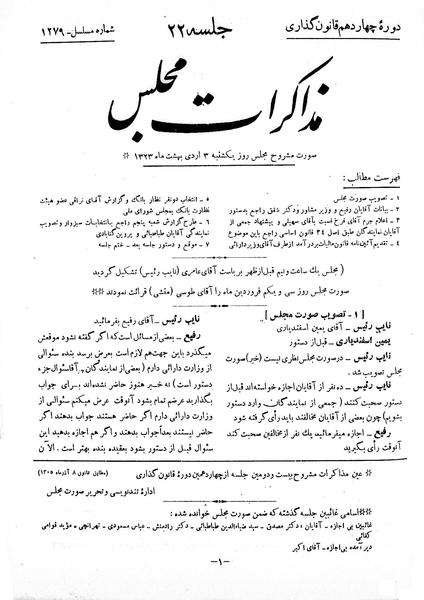 دورهٔ چهاردهم قانون گذاری
جلسه ۲۲
شماره مسلسل - ۱۲۷۹
مذاکرات مجلس
صورت مشروح مجلس روز یکشنبه ۳ اردی بهشت ماه ۱۳۲۳ *
فهرست مطالب:
۱ - تصویب صورت مجلس
۲ - بیانات آقایان رفیع و وزیر مشاور و دکتر شفق راجع بدستور
۳ - اعلام جرم آقای فرخ نسبت بآقای سهیلی و پیشنهاد جمعی از
نمایندگان طبق اصل ۳۴ قانون اساسی راجع باین موضوع
۴ - تقدیم آئین‌نامه قانون مالیات بر درآمد از طرف آقای وزیر دارائی
۵ - انتخاب دو نفر نظار بانک و گزارش آقای نراقی عضو هیئت
نظارت بانک بمجلس شورای ملی
۶ - طرح گزارش شعبه پنجم راجع بانتخابات سبزوار و تصویب
نمایندگی آقایان طباطبائی و پروین گنابادی
۷ - موقع و دستور جلسه بعد - ختم جلسه
مجلس یک ساعت و نیم قبل از ظهر بریاست آقای عامری (نایب رئیس) تشکیل گردید
صورت مجلس روز سی و یکم فروردین ماه را آقای طوسی (منشی) قرائت نمودند
[ ۱ - تصویب صورت مجلس ]
نایب رئیس - آقای یمین اسفندیاری
یمین اسفندیاری - قبل از دستور
نایب رئیس - در صورت مجلس نظری نیست (خیر) صورت
مجلس تصویب شد.
نایب رئیس - ده نفر از آقایان اجازه خواسته‌اند قبل از
دستور صحبت کنند (جمعی از نمایندگان - وارد دستور
بشویم) چون بعضی از آقایان مخالفند باید رأی گرفته شود
رفیع - اجازه میفرمائید یک نفر از مخالفین صحبت کند
آنوقت رأی بگیرید
نایب رئیس - آقای رفیع بفرمائید
رفیع - بعضی از مسائل است که اگر گفته نشود موقعش
میگذرد باین جهت هم لازم است بعرض برسد بنده سئوالی
از وزارت دارائی دارم (بعضی از نمایندگان - آقا سئوال جزء
دستور است) نه خیر هنوز حاضر نشده‌اند برای جواب
بگذارید عرضم تمام بشود آنوقت عرض میکنم سئوالی از
وزارت دارائی دارم اگر حاضر هستند جواب بدهند اگر
حاضر نیستند بعداً جواب بدهند و اگر هم اجازه بدهید این
سئوال قبل از دستور بشود بعقیده بنده بهتر است. الآن
* عین مذاکرات مشروح بیست و دومین جلسه از چهاردهمین دورهٔ قانون گذاری
(مطابق قانون ۸ آذرماه ۱۳۰۵)
ادارهٔ تندنویسی و تحریر صورت مجلس
* اسامی غائبین جلسه گذشته که ضمن صورت مجلس خوانده شده:
غائبین بی اجازه - آقایان: دکتر مصدق - سید ضیاءالدین طباطبائی - دکتر رادمنش - عباس مسعودی - تهرانچی - مؤید قوامی
کفائی
دیر آمده بی‌اجازه - آقای اکبر
- ۱ -